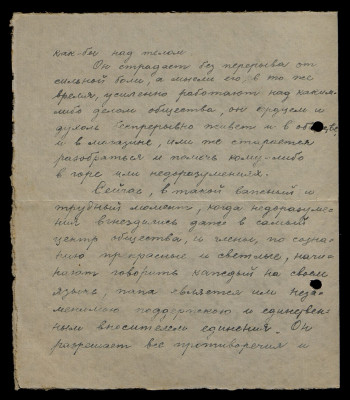 как-бы над телом
Он страдает без перерыва от
сильной боли, а мысли его, в то же
время, усиленно работают над каким-
либо делом общества, он сердцем и
духом беспрерывно живет и в обществе,
и в магазине, или же старается
разобраться и помочь кому-либо
в горе или недоразумениях.
Сейчас, в такой важный и
трудный момент, когда недоразуме-
ния вгнездились даже в самый
центр общества, и члены, по созна-
нию прекрасные и светлые, начи-
нают говорить каждый на своем
языке, папа является им неза-
менимою поддержкою и единствен-
ным вносителем единения. Он
разрешает все противоречия и